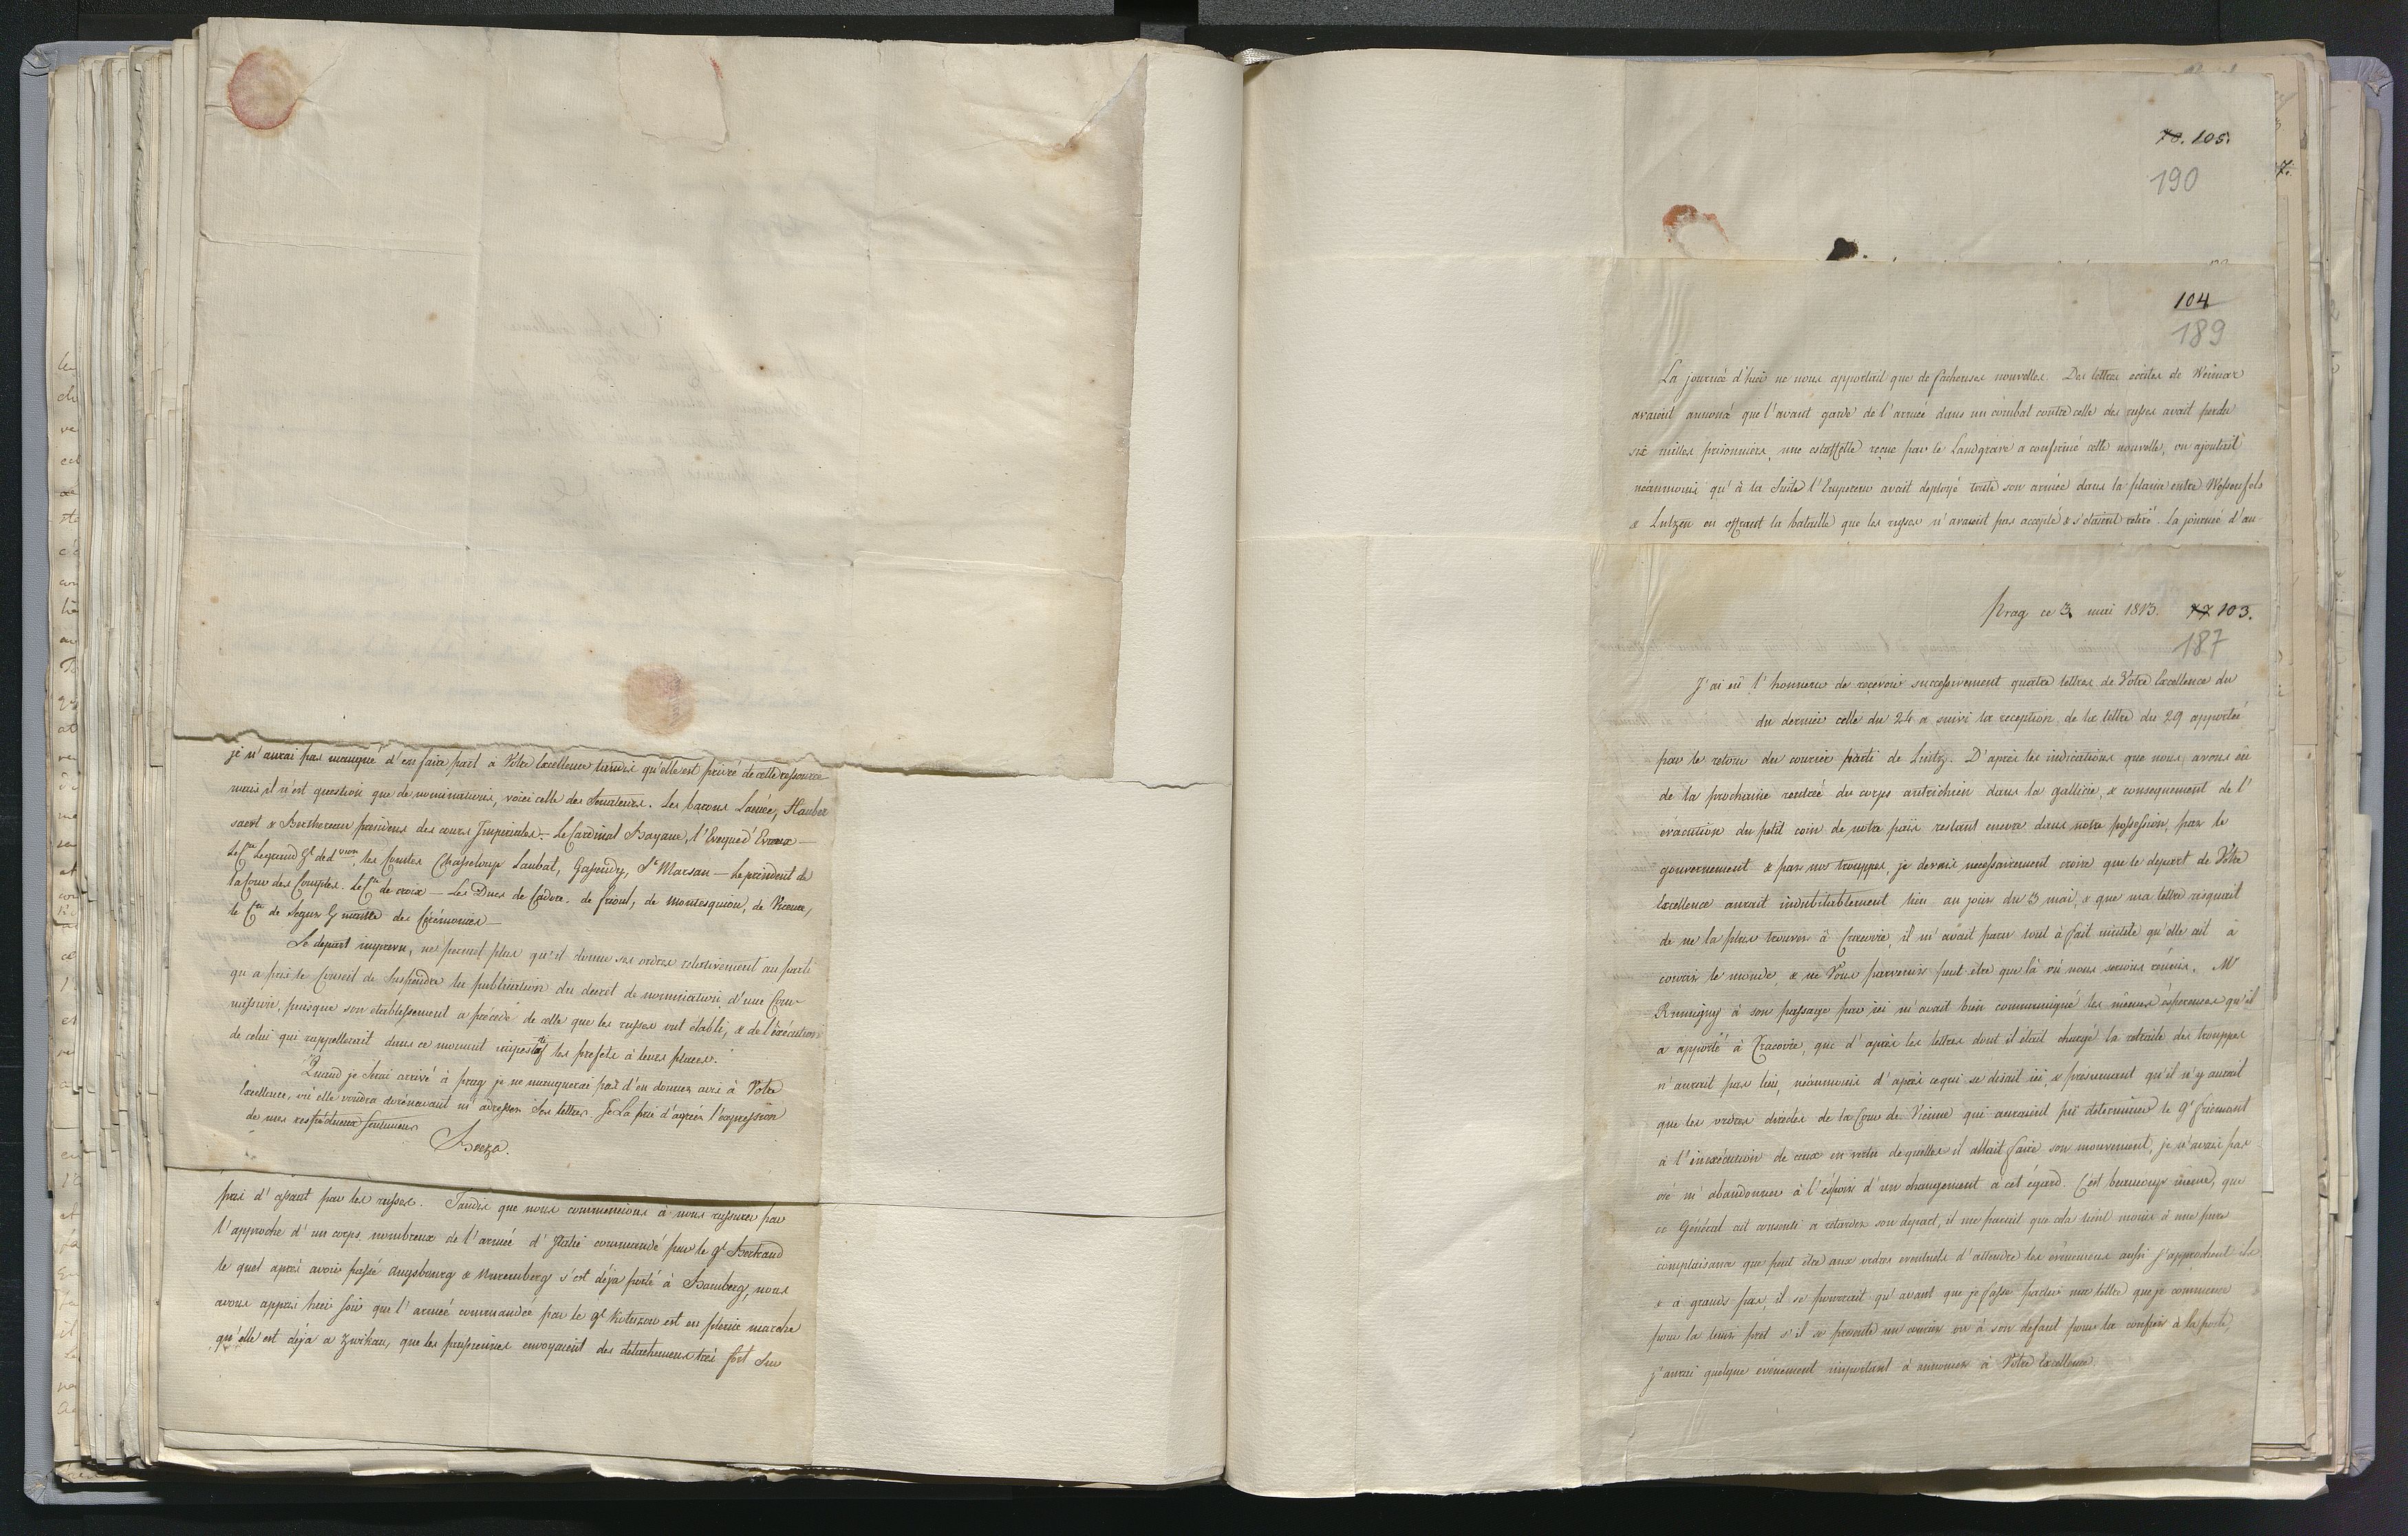 je n'aurai pas manqué d'en faire part à Votre Excellence tandis qu'elle est privé de cette ressource
mais il n'est question que de nominations, voici celle des Senateurs. Les barons Lacuée, Haubersaert & Berthereau presidens des cours Imperiales. — Le Cardinal Bayane, l'Eveque d'Evreux —
Le Cte Legrand Gl de dvion, les Comtes Chasseloup Laubat, Gassendy, St Marsan — Le president de
la Cour des Comptes. Le Cte de croix — Les Ducs de Cadore, de frioul, de Montesquiou, de Vicence,
le Cte de Segur G maitre des Cérémonies —
Le depart imprevu, ne permet plus qu'il donne ses ordres relativement au parti
qu a pris le Conseil de suspendre la publication du decret de nomination d'une Com-
mission, puisque son etablissement a précédé de celle que les russes ont établi, & de l'éxécution
de celui qui rappellerait dans ce moment les prefets à leurs places.
Quand je serai arrivé à prag je ne manquerai pas d'en donner avis à Votre
Excellence, où elle voudra dorénavant m'adresser ses lettres. Je La prie d'agréer l'expression
de mes respectueux sentimens
pris d'assaut par les russes. Tandis que nous commencions à nous rassurer par
l'approche d'un corps nombreux de l'armée d'Italie commandé par le gl Bertrand
le quel après avoir passé Augsbourg & Nuremberg s'est déja porté à Bamberg, nous
avons appris hier soir que l'armée commandée par le gl Kutuzow est en pleine marche
qu'elle est déja a Zwikau, que les prussiens envoyaient des detachemens très fort sur
70. 105.
190
104
189
La journée d'hui ne nous apportait que de facheuses nouvelles. Des lettres ecrites de Weimar
avaient annoncé que l'avant garde de l'armée dans un combat contre celle des russes avait perdu
six milles prisonniers, une estaffette reçue par le Landgrave a confirmé cette nouvelle, on ajoutait
néanmoins qu'à la suite l'Empereur avait deployé toute son armée dans la plaine entre Weissenfels
& Lutzen en offrant la bataille que les russes n'avaient pas accepté & s'étaient retiré. la journée d'au-
Prag ce 3 mai 1813. 77 103.
187
J'ai eû l'honneur de recevoir successivement quatre lettres de Votre Excellence du
du dernier celle du 24 a suivi la reception de la lettre du 29 apportée
par le retour du courier parti de . D'après les indications que nous avons eû
de la prochaine rentrée du corps autrichien dans la gallicie, & consequement de l'
évacution du petit coin de notre païs restant encore dans notre possession, par le
gouvernement & par nos trouppes, je devais necessairement croire que le depart de Votre
Excellence aurait indubitablement lieu au jour du 3 mai, & que ma lettre risquait
de ne la plus trouver à Cracovie, il m'avait paru tout à fait inutile qu'elle ait à
courir le monde, & ne Vous parvenir peut être que là où nous serions réunis. Mr
Rumigny à son passage par ici m'avait bien communiqué les mêmes ésperances qu'il
a apporté à Cracovie, que d'après les lettres dont il était chargé la retraite des trouppes
n'aurait pas lieu, néanmoins d'après ce qui se disait ici, & présumant qu'il n'y aurait
que les ordres directes de la Cour de Vienne qui auraient pû déterminer le gl frimont
à l'inéxécution de ceux en vertu dequelles il allait faire son mouvement, je n'avais pas
osé m'abandonner à l'éspoir d'un changement à cet égard. C'ést beaucoup même, que
ce Général ait consenti a retarder son depart, il me parait que cela tient moins à une pure
complaisance que peut être aux ordres eventuels d'attendre les événemens aussi s'approchent ils
& à grands pas, il se pourrait qu'avant que je fasse partir ma lettre que je commence
pour la tenir prêt s'il se presente un courier ou à son defaut pour la confier à la poste,
j'aurai quelque événement important à annoncer à Votre Excellence.